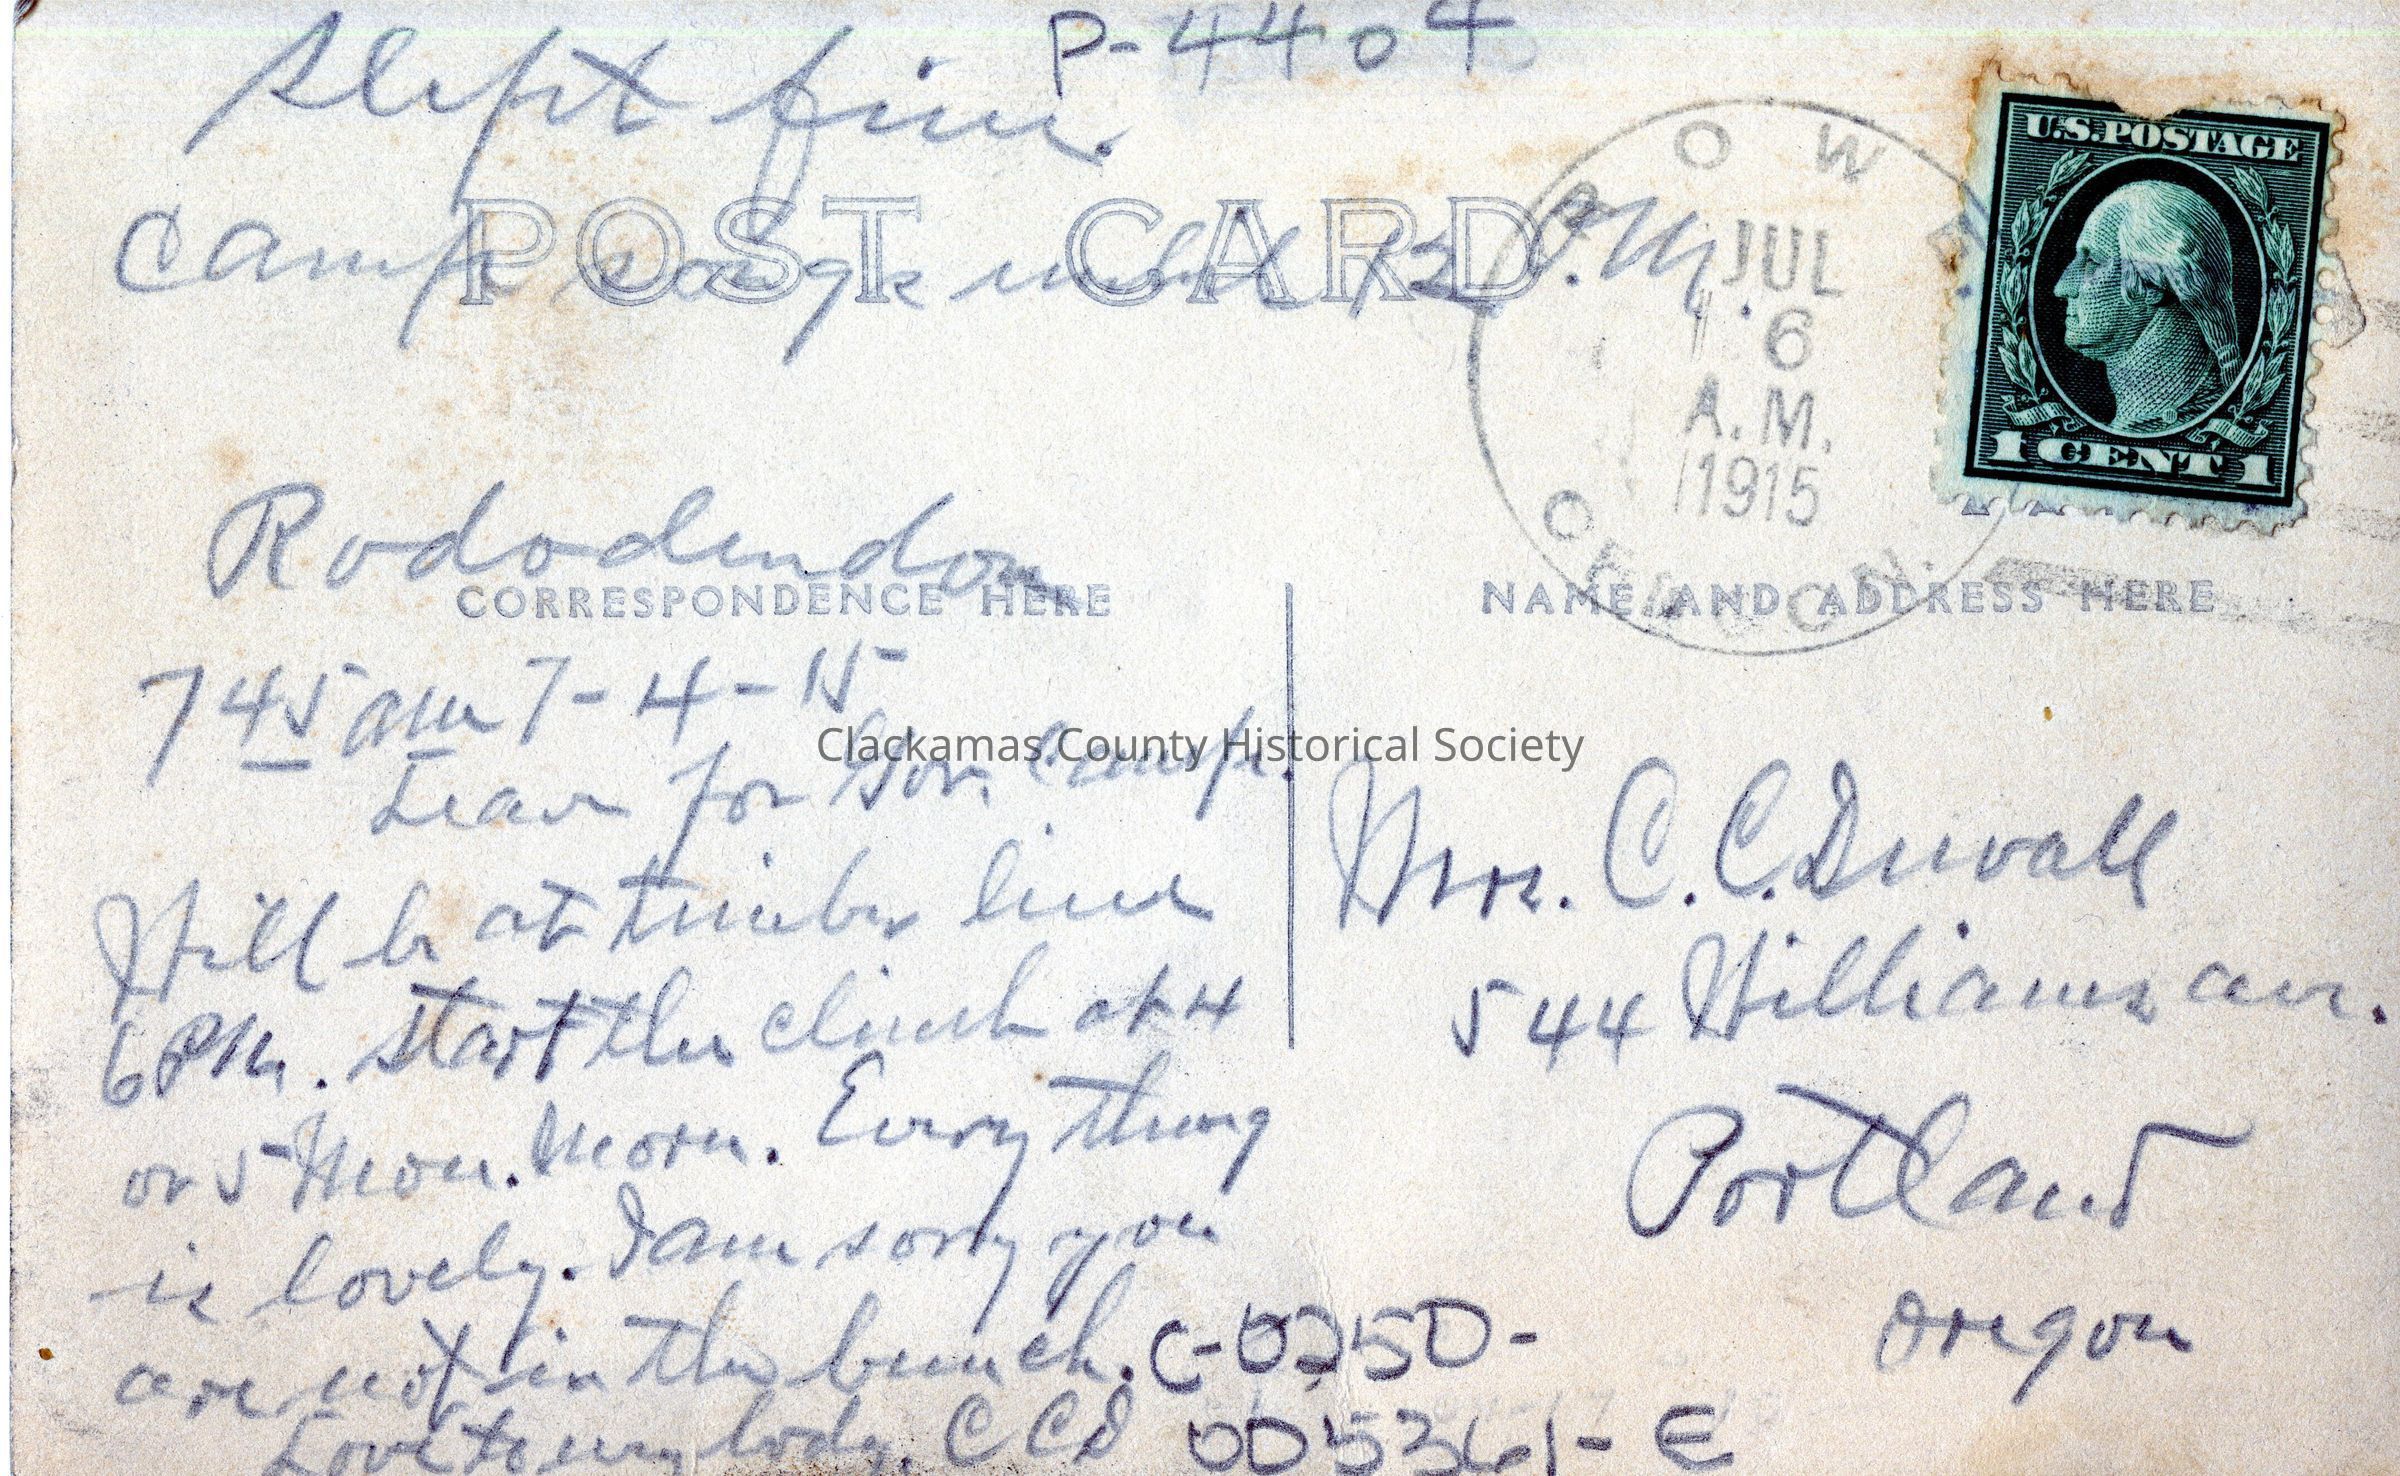 P-4404
Slept fine.
Camp songs until 12 P.M.
POST CARD
ROWE
JUL
6
A.M.
1915
OREGON.
U.S. POSTAGE
1 CENT 1
Rododendon
CORRESPONDENCE HERE
NAME AND ADDRESS HERE
7 45 am 7-4-15
Leave for Gov. Camp.
Clackamas County Historical Society
Will be at timber line
6 PM. Start the climb at 4
or 5 Mon. Morn. Everything
is lovely. I am sorry you
are not in the bunch.
Love to every body. C C D
Mrs. C. C. Duvall
544 Williams ave.
Portland
Oregon
C-0250-
005361-E